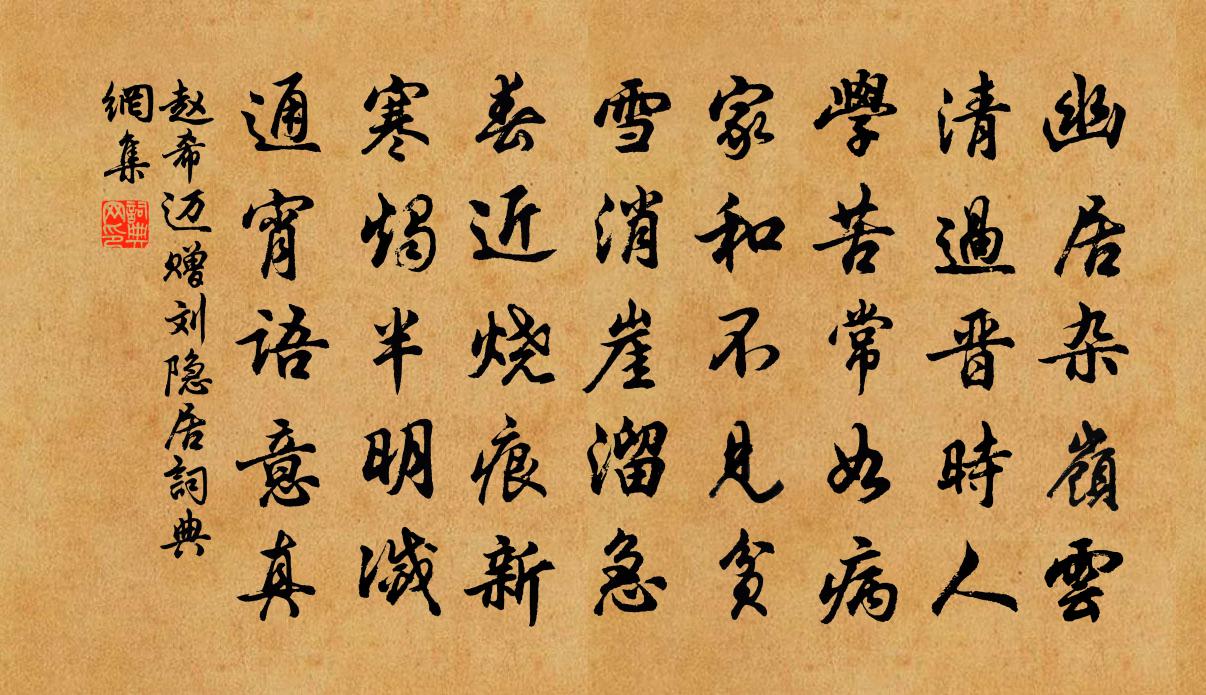 幽居杂嶺雲
清過晋時人
學苦常如病
家和不見貧
雪消崖溜急
春近烧痕新
寒燭半明滅
通宵語意真
赵希迈赠刘隐居詞典
網集
詞典
网印